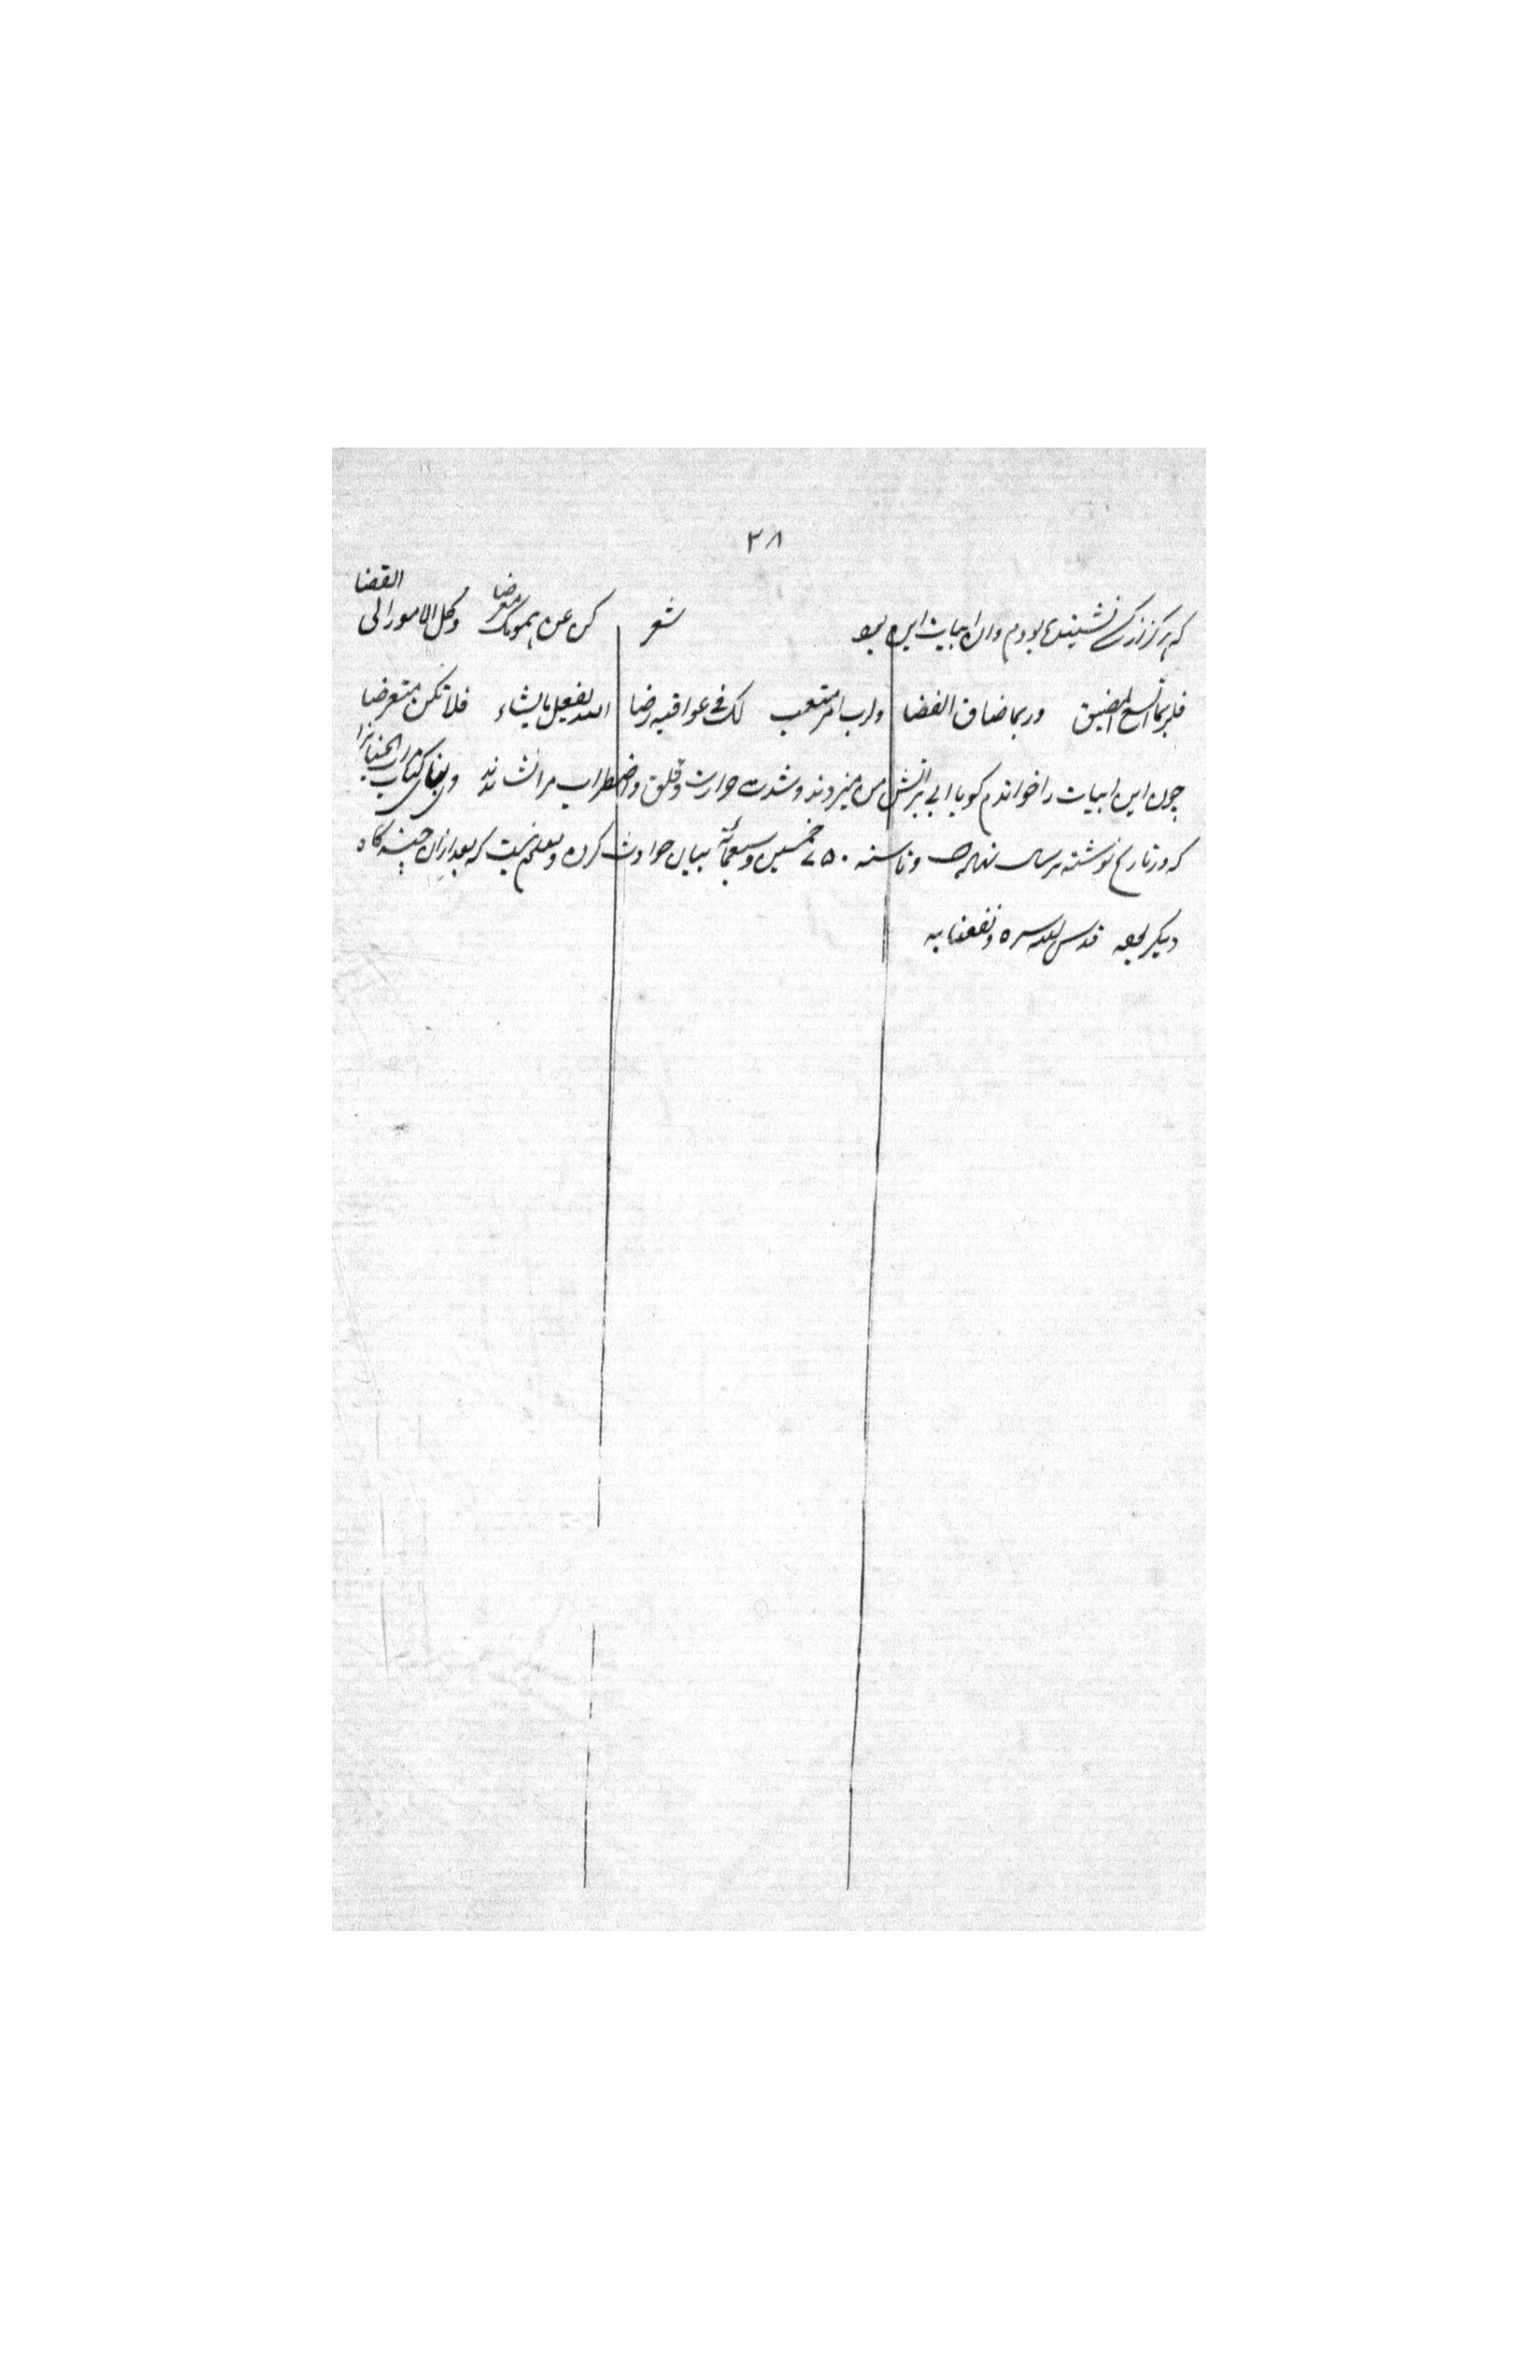 ۳۸
که هرگز از کسی نشنیده بودم وان ابیات این بود شعر کن عن همومک معرضا وکل الامور الی القضا
فلربما اتسع المضیق وربما ضاق الفضا ولرب امر متعب لک فی عواقبه رضا الله یفعل مایشاء فلا تکن متعرضا
چون این ابیات را خواندم کویا ابی بر اتش من میزدند وشدت حرارت وقلق واضطراب مرا نشاندند کتاب
که در تاریخ نوشته تا سنه ۷۵۰ خمسین وسبعمائة بیان حوادث کرده ومعلوم نیست که بعد ازان چند کاه
دیکر قدس الله سره ونفعنا به